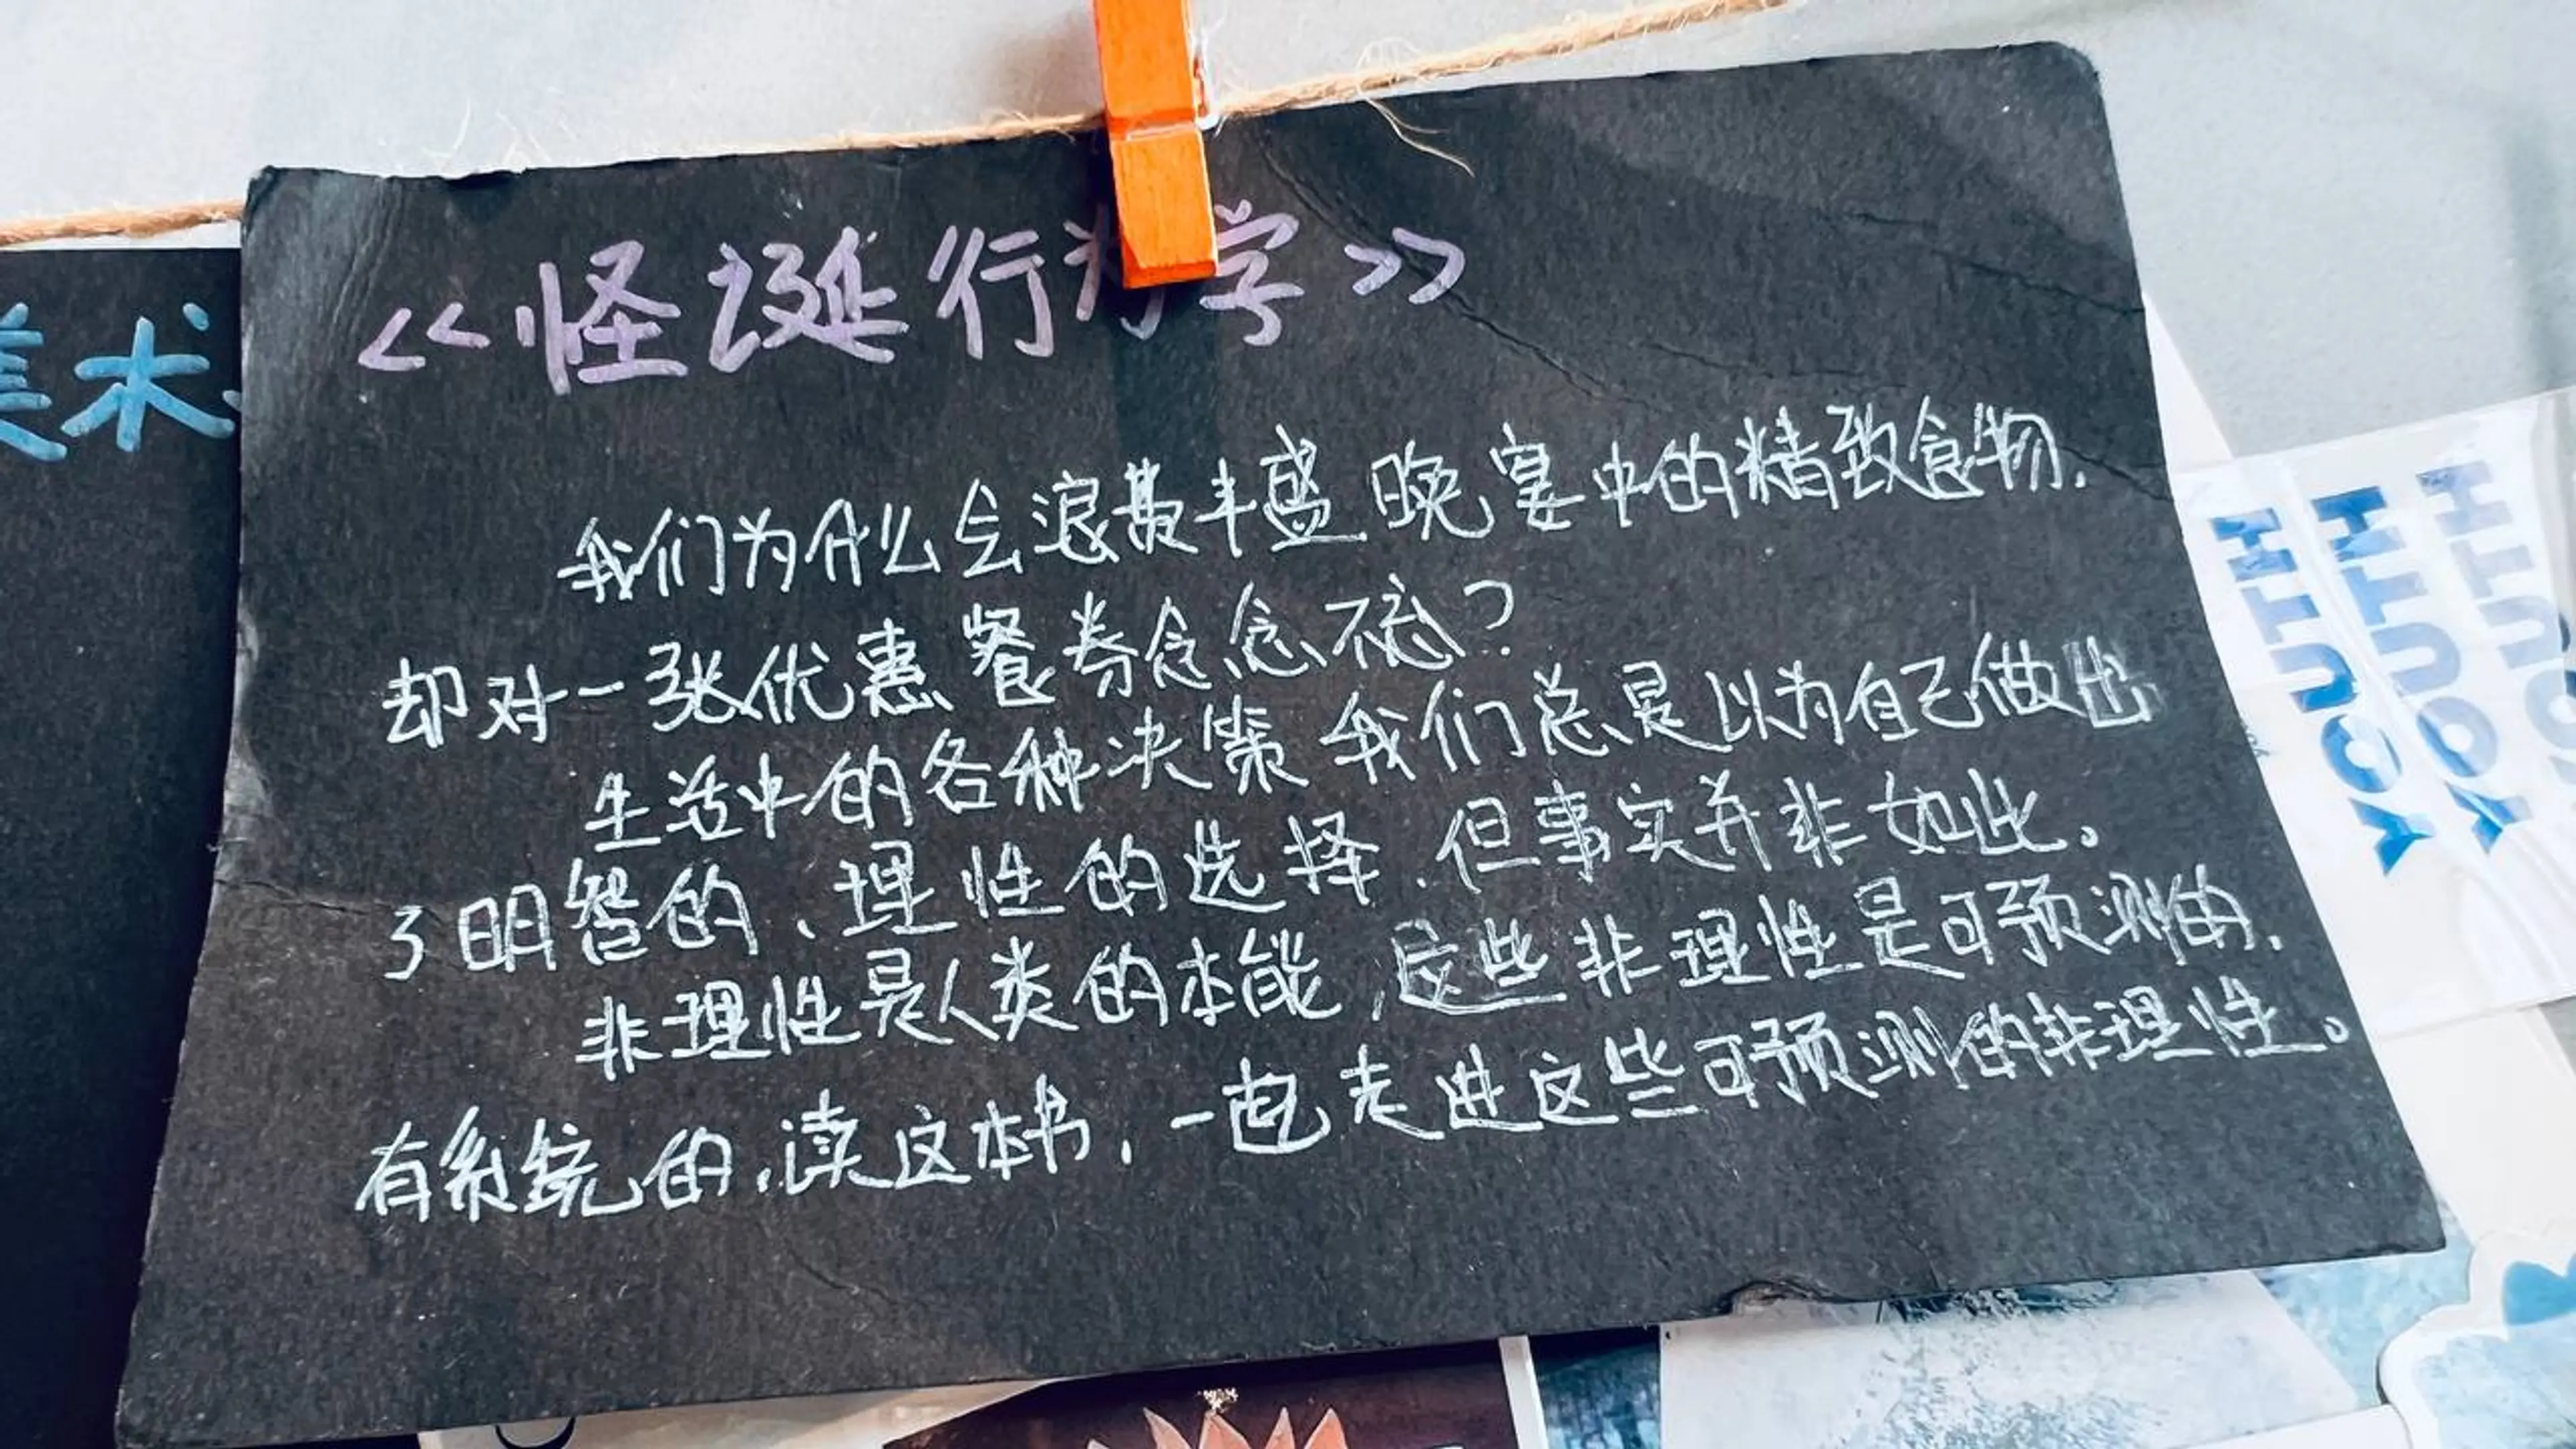 <<怪诞行为学>>
我们为什么会浪费丰盛晚宴中的精致食物.
却对一张优惠餐券念念不忘?
生活中的各种决策 我们总是以为自己做出
了明智的、理性的选择.但事实并非如此。
非理性是人类的本能,这些非理性是可预测的.
有系统的,读这本书,一起走进这些可预测的非理性。
美术
YOUTH
YOUTH
YOUTH